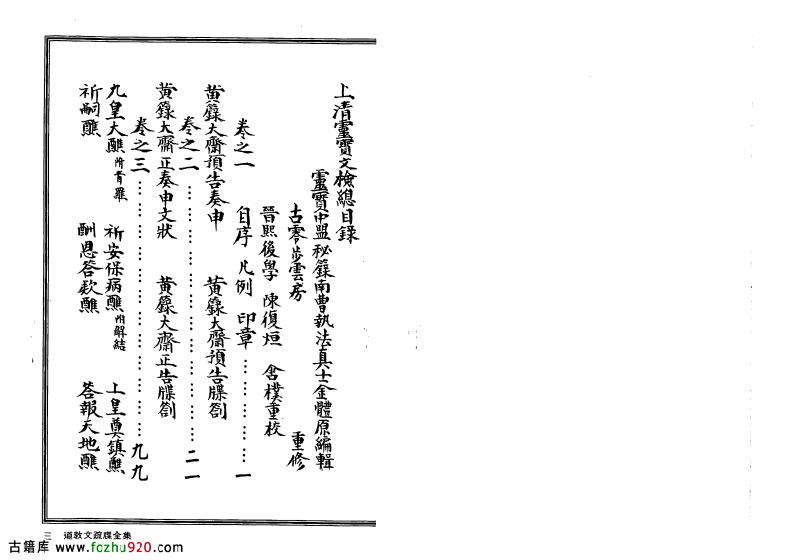 上清靈寶文檢總目錄
靈寶中盟秘籙南曹執法真士金體原編輯
古零步雲房 重修
晉熙後學 陳復烜 含樸重校
自序 凡例 印章………………一
卷之一
黃籙大齋預告奏申 黃籙大齋預告牒劄
卷之二………………二一
黃籙大齋正奏申文狀 黃籙大齋正告牒劄
卷之三………………九九
九皇大醮附青羅 祈安保病醮附解結 上皇奠鎮醮
祈嗣醮 酬恩答款醮 答報天地醮
三 道教文疏牒全集
古籍库 www.fozhu920.com